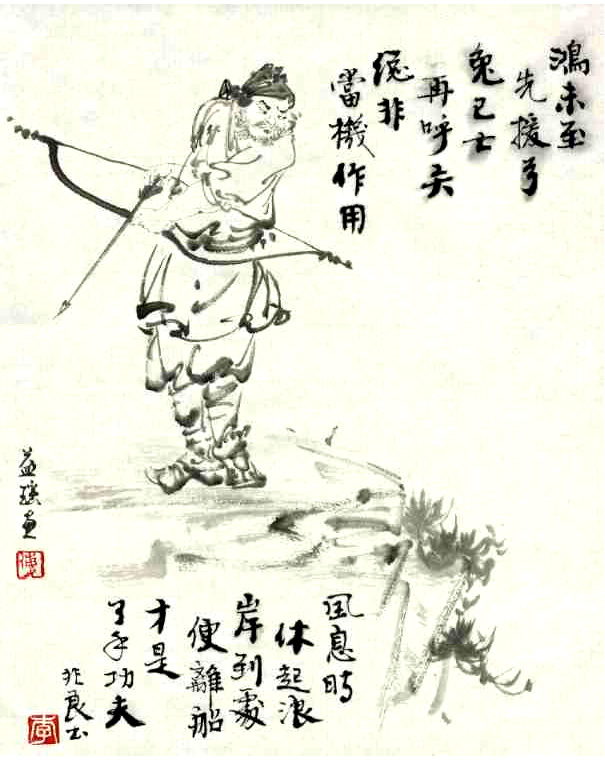 鴻未至
先援弓
兔已亡
再呼矢
總非
當機作用
風息時
休起浪
岸到處
便離船
才是
了手功夫
良书
李
益
画